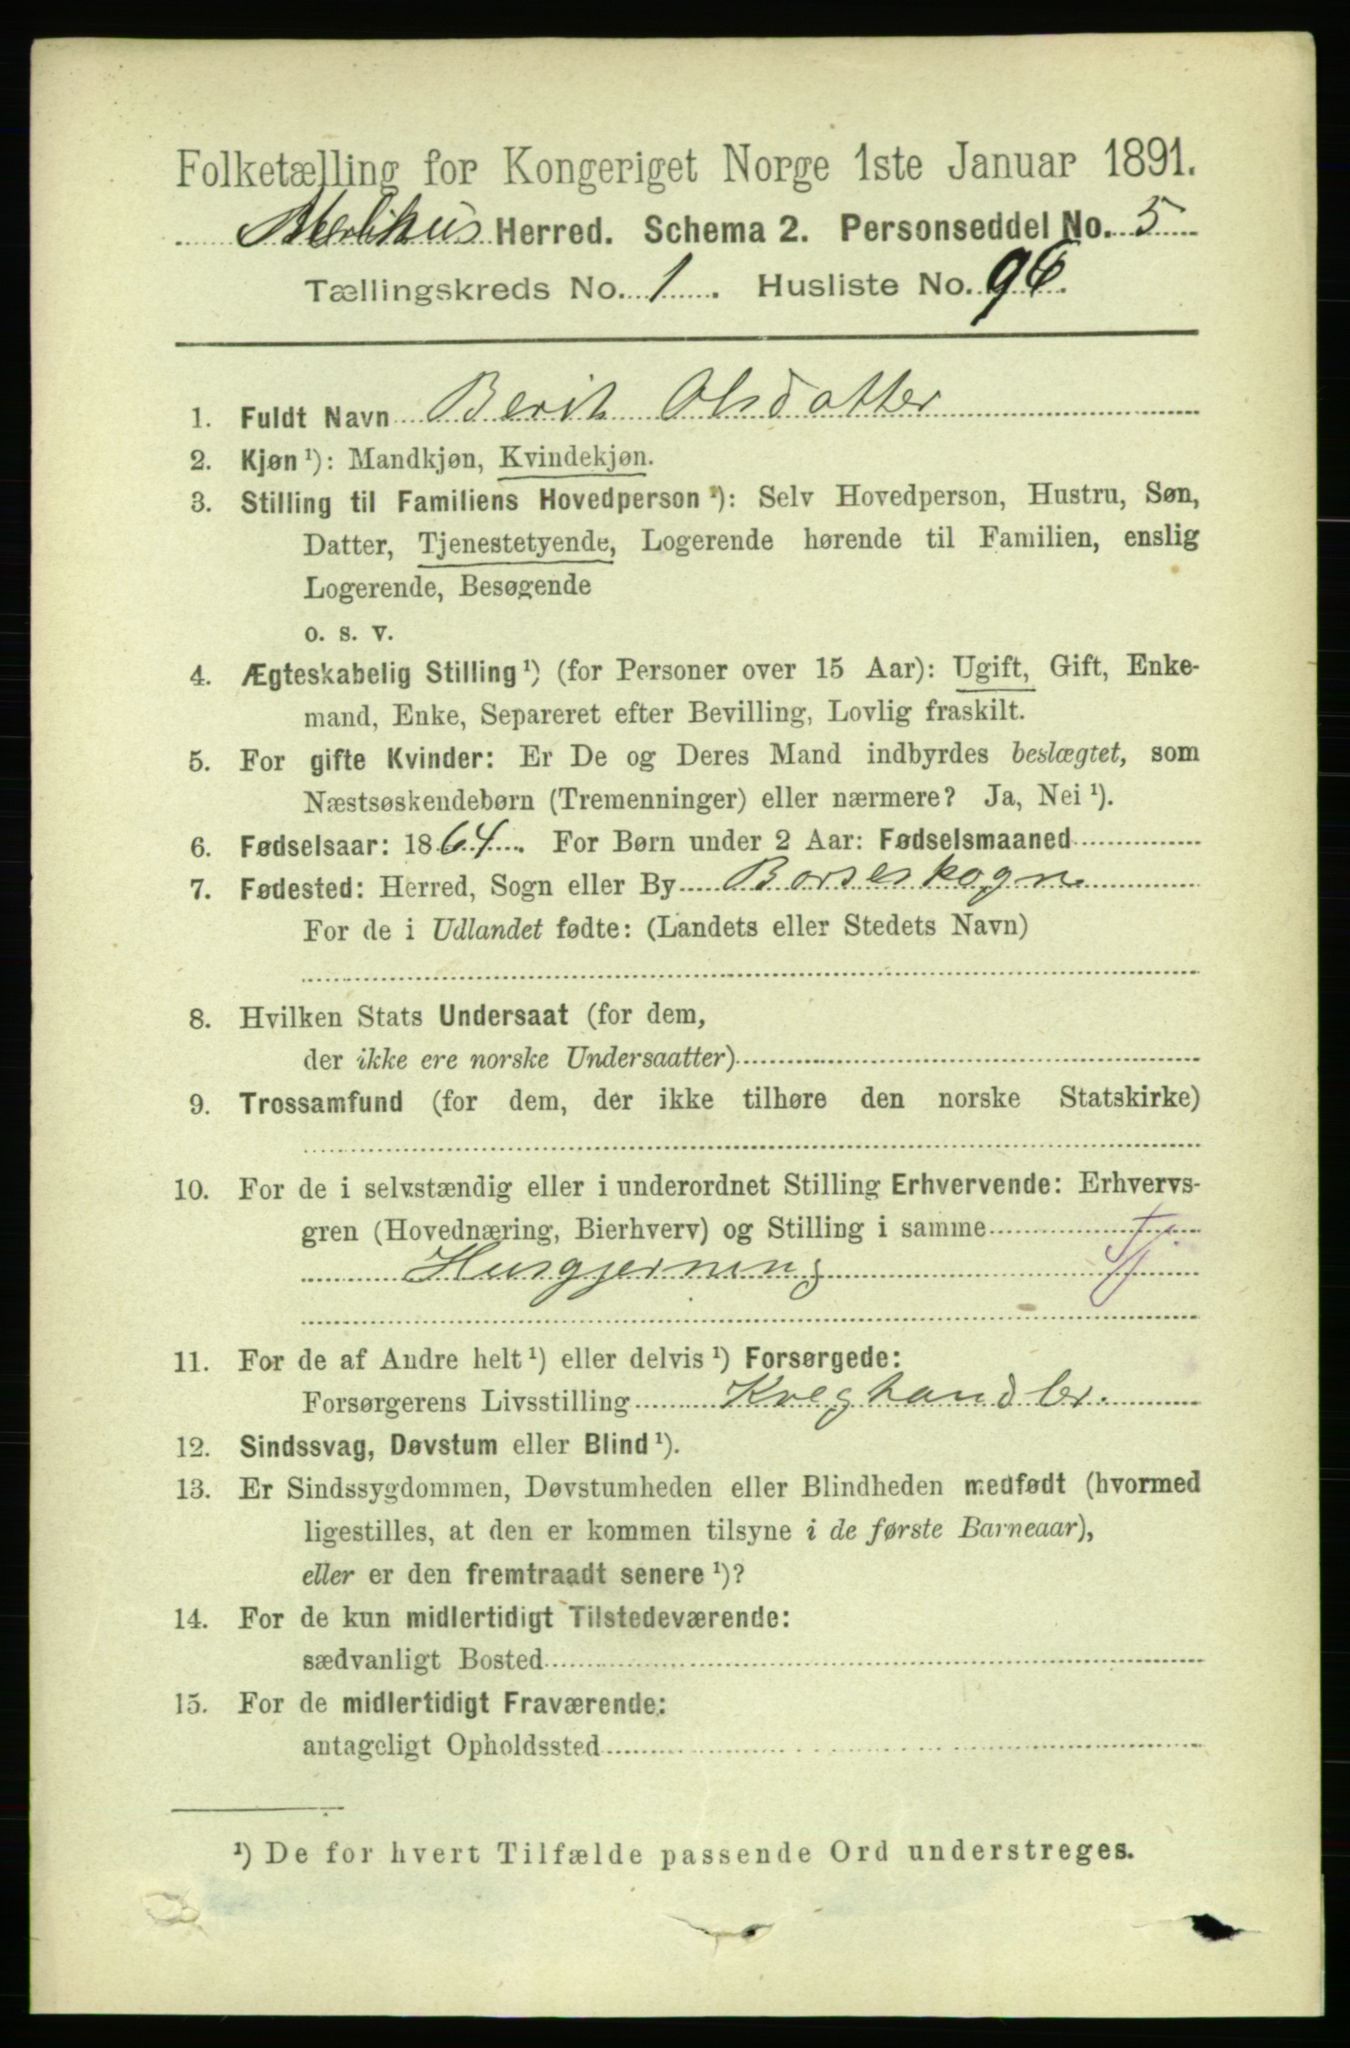 Folketælling for Kongeriget Norge 1ste Januar 1891.
Melhus Herred. Schema 2. Personseddel No. 5
Tællingskreds No. 1. Husliste No. 96.
1. Fuldt Navn Berit Olsdatter
2. Kjøn ¹): Mandkjøn, Kvindekjøn.
3. Stilling til Familiens Hovedperson ¹): Selv Hovedperson, Hustru, Søn,
Datter, Tjenestetyende, Logerende hørende til Familien, enslig
Logerende, Besøgende
o. s. v.
4. Ægteskabelig Stilling ¹) (for Personer over 15 Aar): Ugift, Gift, Enke-
mand, Enke, Separeret efter Bevilling, Lovlig fraskilt.
5. For gifte Kvinder: Er De og Deres Mand indbyrdes beslægtet, som
Næstsøskendebørn (Tremenninger) eller nærmere? Ja, Nei ¹).
6. Fødselsaar: 1864. For Børn under 2 Aar: Fødselsmaaned
7. Fødested: Herred, Sogn eller By Borseskogn
For de i Udlandet fødte: (Landets eller Stedets Navn)
8. Hvilken Stats Undersaat (for dem,
der ikke ere norske Undersaatter)
9. Trossamfund (for dem, der ikke tilhøre den norske Statskirke)
10. For de i selvstændig eller i underordnet Stilling Erhvervende: Erhvervs-
gren (Hovednæring, Bierhverv) og Stilling i samme
Husgjerning Tj
11. For de af Andre helt ¹) eller delvis ¹) Forsørgede:
Forsørgerens Livsstilling Kreghandler.
12. Sindssvag, Døvstum eller Blind ¹).
13. Er Sindssygdommen, Døvstumheden eller Blindheden medfødt (hvormed
ligestilles, at den er kommen tilsyne i de første Barneaar),
eller er den fremtraadt senere ¹)?
14. For de kun midlertidigt Tilstedeværende:
sædvanligt Bosted
15. For de midlertidigt Fraværende:
antageligt Opholdssted
¹) De for hvert Tilfælde passende Ord understreges.